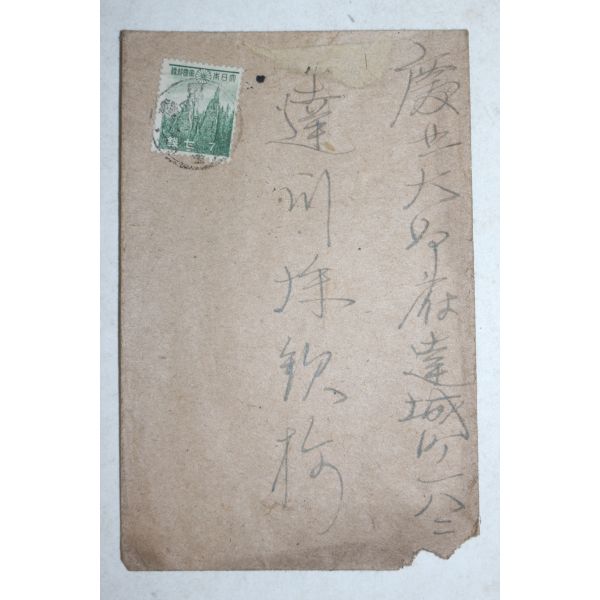 慶北大邱府達城町一八二
達川徐欽
大日本帝國郵便
7 七錢